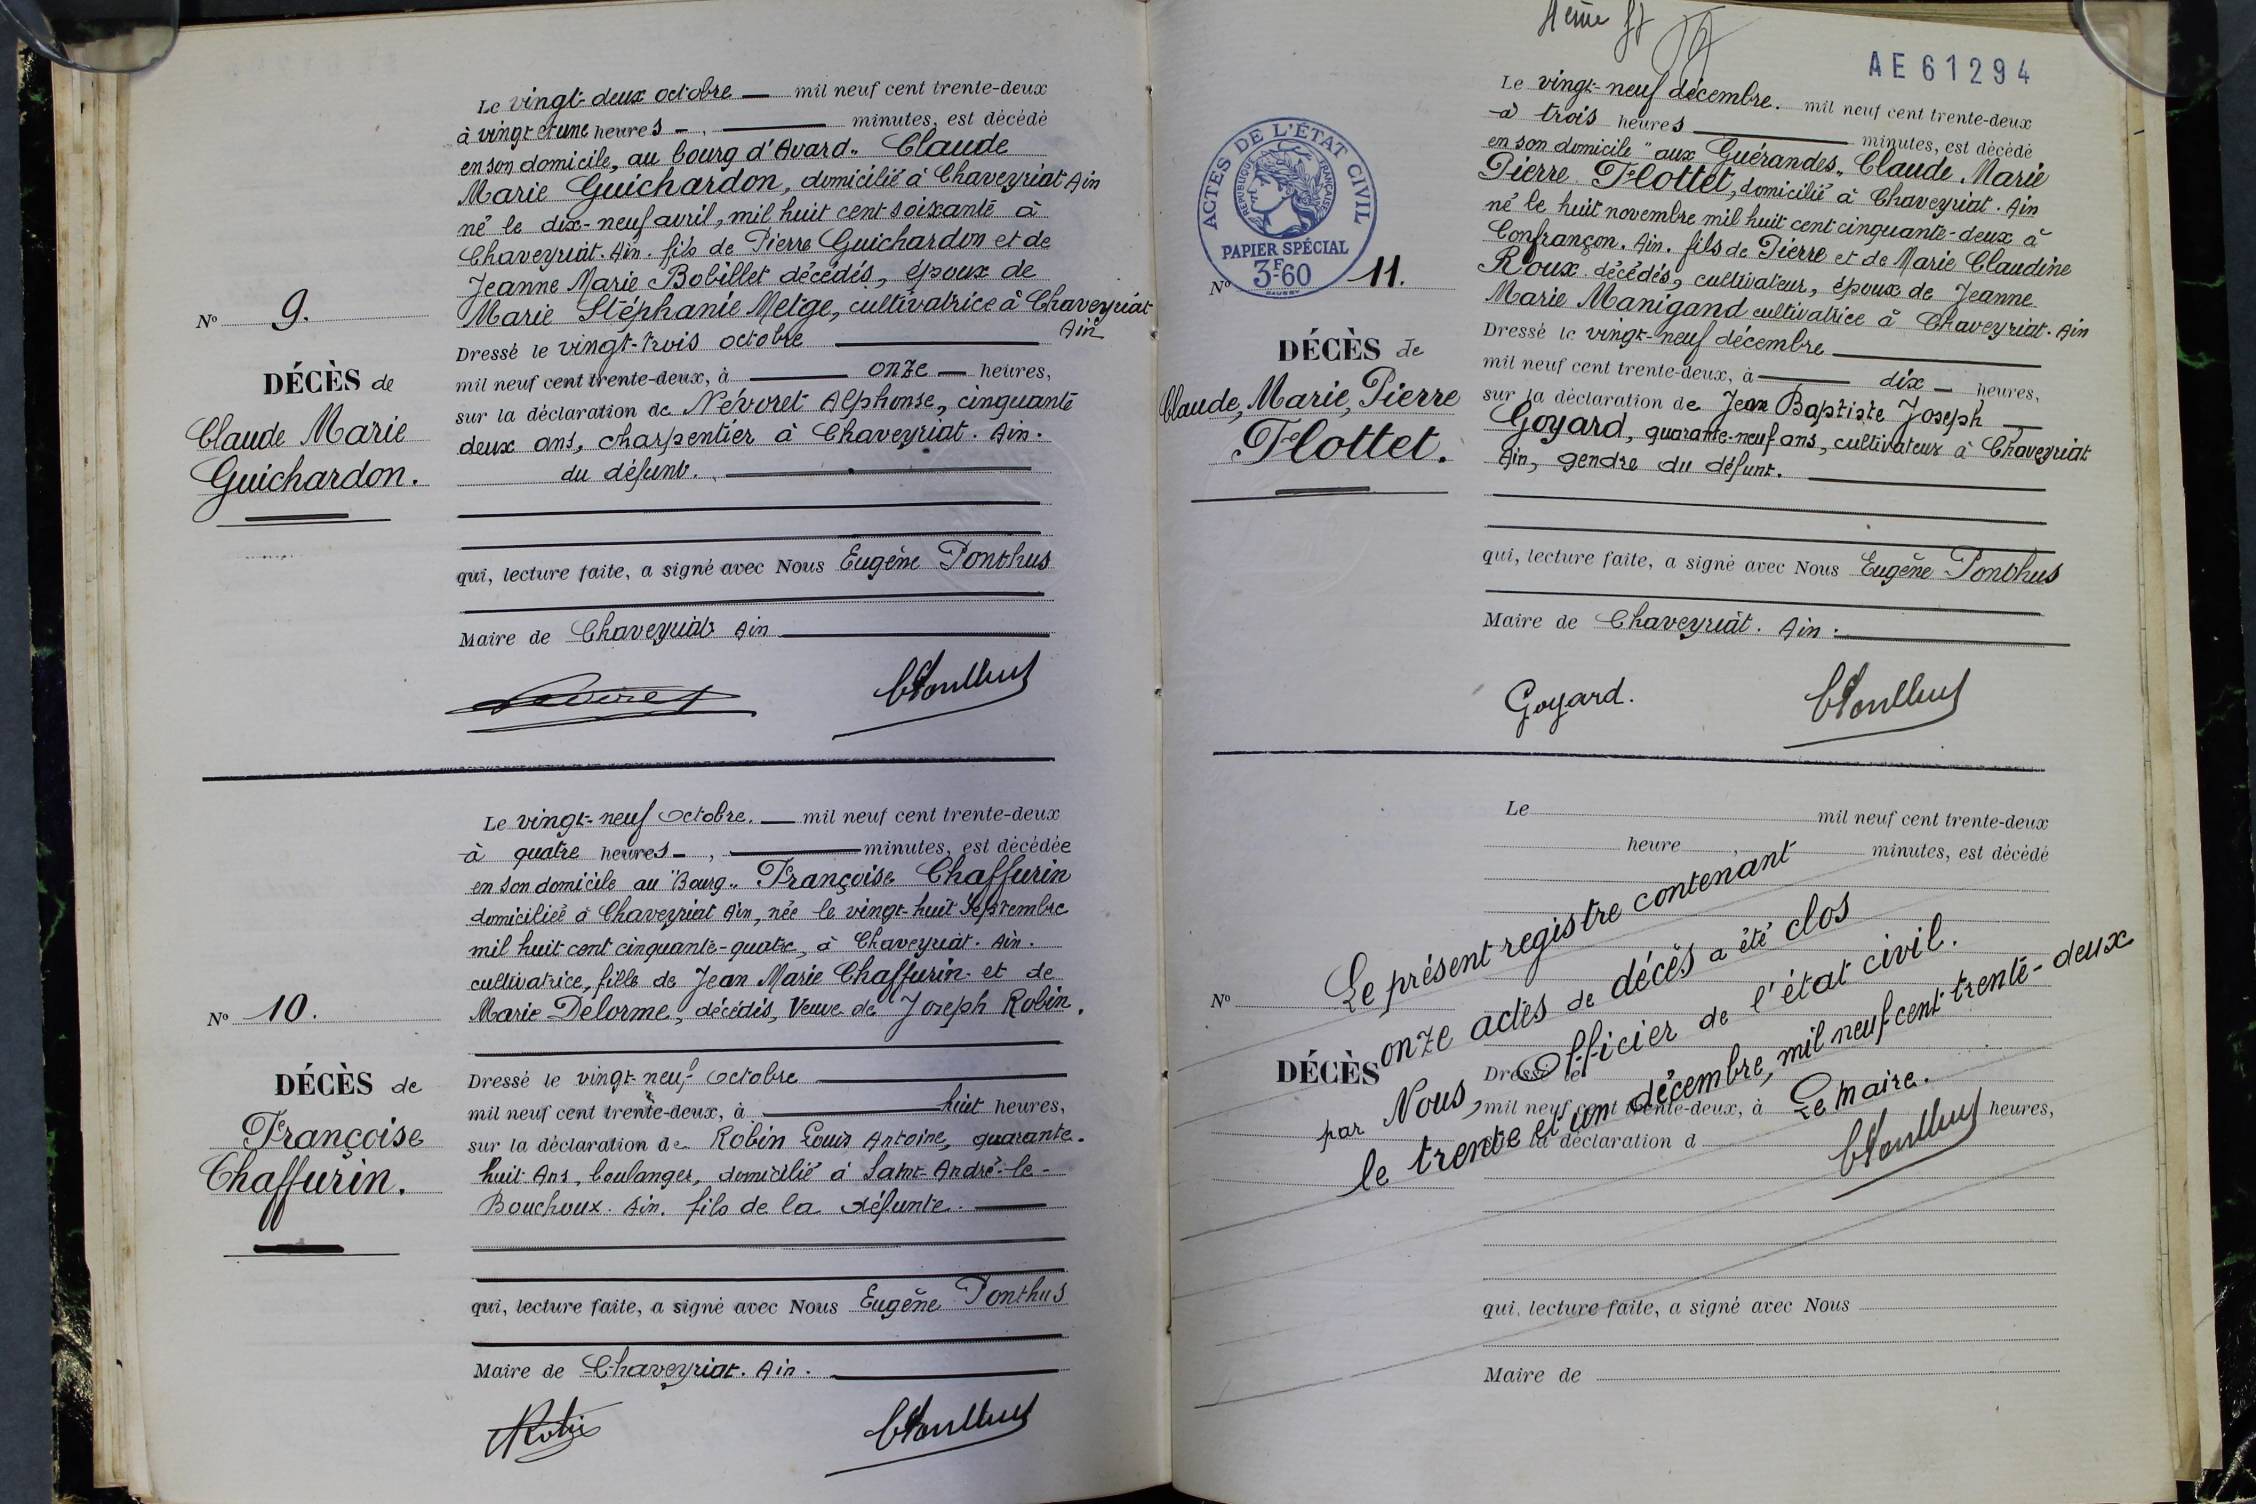 Le vingt-deux octobre — mil neuf cent trente-deux
à vingt et une heures — , — minutes, est décédé
en son domicile, au bourg d'Avard„ Claude
Marie Guichardon, domicilié à Chaveyriat Ain
né le dix-neuf avril, mil huit cent soixante à
Chaveyriat. Ain. fils de Pierre Guichardon et de
Jeanne Marie Bobillet décédés, époux de
Marie Stéphanie Metge, cultivatrice à Chaveyriat
Ain
N° 9.
DÉCÈS de
Claude Marie
Guichardon.
Dressé le vingt-trois octobre
mil neuf cent trente-deux, à — onze — heures,
sur la déclaration de Névoret Alphonse, cinquante
deux ans, charpentier à Chaveyriat. Ain.
du défunt.
qui, lecture faite, a signé avec Nous Eugène Ponthus
Maire de Chaveyriat Ain
Le vingt-neuf octobre. — mil neuf cent trente-deux
à quatre heures — , — minutes, est décédée
en son domicile au "Bourg„ Françoise Chaffurin
domiciliée à Chaveyriat Ain, née le vingt-huit Septembre
mil huit cent cinquante-quatre, à Chaveyriat. Ain.
cultivatrice, fille de Jean Marie Chaffurin et de
Marie Delorme, décédés, Veuve de Joseph Robin.
N° 10.
DÉCÈS de
Françoise
Chaffurin.
Dressé le vingt-neuf octobre
mil neuf cent trente-deux, à — huit heures,
sur la déclaration de Robin Louis Antoine, quarante-
huit Ans, boulanger, domicilié à Saint-André-le-
Bouchoux. Ain. fils de la défunte.
qui, lecture faite, a signé avec Nous Eugène Ponthus
Maire de Chaveyriat. Ain.
Robin
4ème ft
AE61294
ACTES DE L'ÉTAT CIVIL
RÉPUBLIQUE FRANÇAISE
PAPIER SPÉCIAL
3F60
Le vingt-neuf décembre. mil neuf cent trente-deux
à trois heures — minutes, est décédé
en son domicile "aux Guérandes„ Claude Marie
Pierre Flottet, domicilié à Chaveyriat. Ain
né le huit novembre mil huit cent cinquante-deux à
Confrançon. Ain. fils de Pierre et de Marie Claudine
Roux décédés, cultivateur, époux de Jeanne
Marie Manigand cultivatrice à Chaveyriat. Ain
N° 11.
DÉCÈS de
Claude, Marie, Pierre
Flottet.
Dressé le vingt-neuf décembre
mil neuf cent trente-deux, à — dix — heures,
sur la déclaration de Jean Baptiste Joseph
Goyard, quarante-neuf ans, cultivateur à Chaveyriat
Ain, gendre du défunt.
qui, lecture faite, a signé avec Nous Eugène Ponthus
Maire de Chaveyriat. Ain.
Goyard.
Le mil neuf cent trente-deux
heure minutes, est décédé
N°
DÉCÈS
Le présent registre contenant
onze actes de décès a été clos
par Nous, Officier de l'état civil.
le trente et un décembre, mil neuf cent trente-deux
Le Maire.
Dressé le
mil neuf cent trente-deux, à heures,
la déclaration d
qui, lecture faite, a signé avec Nous
Maire de